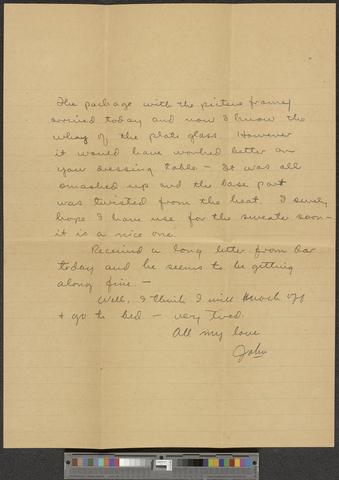 The package with the picture frames
arrived today and now I know the
whay of the plate glass. However
it would have worked better on
your dressing table - It was all
smashed up and the base part
was twisted from the heat. I surely
hope I have use for the sweater soon -
it is a nice one.
Received a long letter from
today and he seems to be getting
along fine. -
Well, I think I will knock off
+ go to bed - very tired.
All my love
John